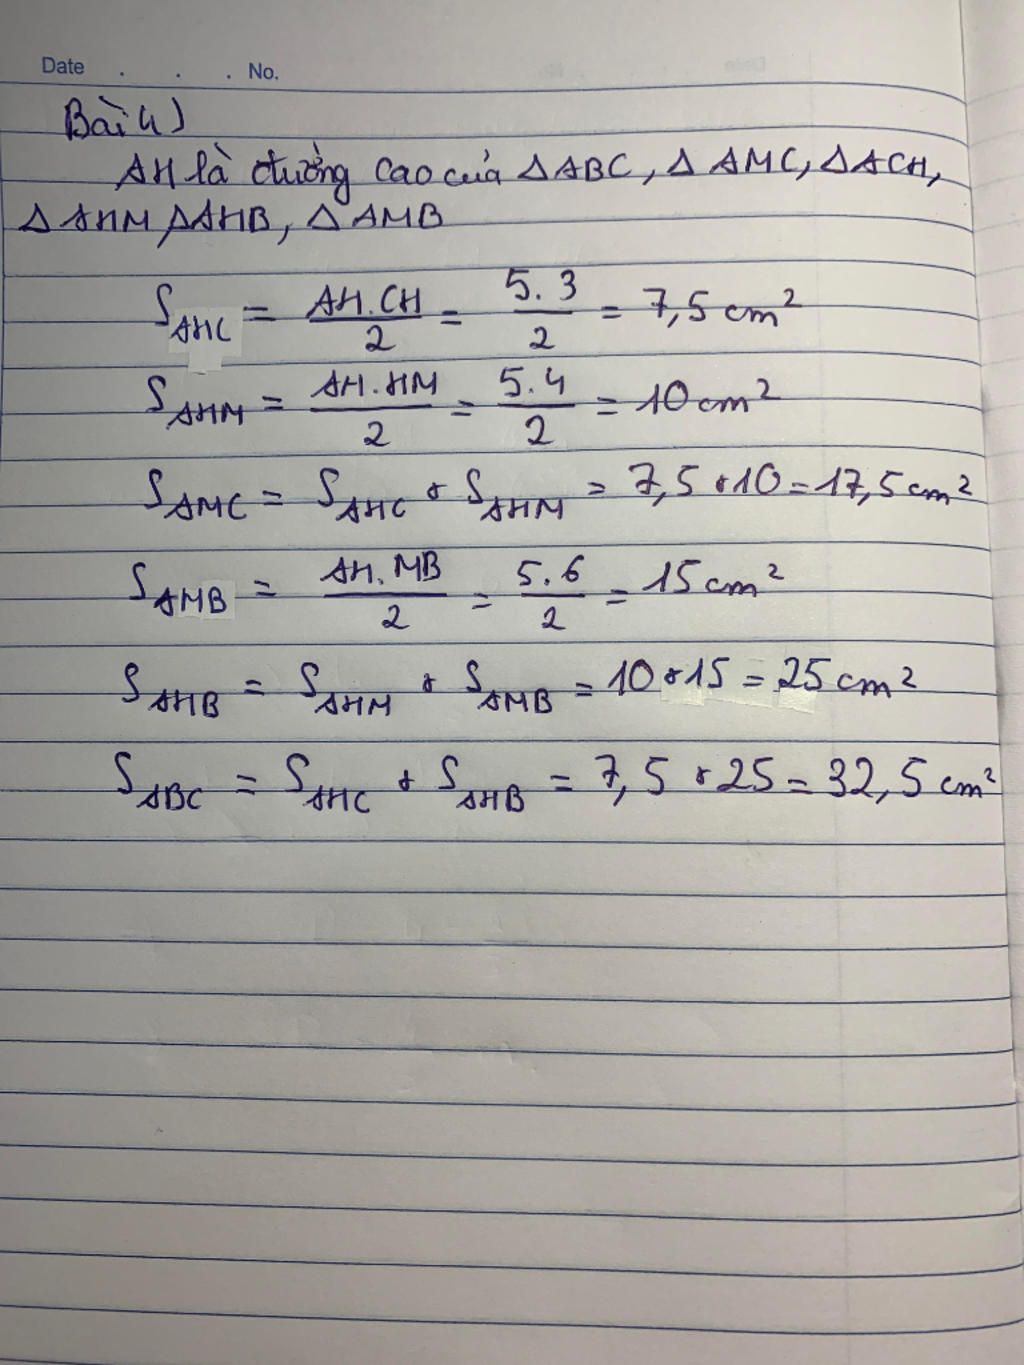 Date . . . No.
Bài 4)
AH là đường cao của ΔABC, Δ AMC, ΔACH,
Δ AHM, ΔAHB, Δ AMB
S_AHC = AH.CH/2 = 5.3/2 = 7,5 cm²
S_AHM = AH.HM/2 = 5.4/2 = 10 cm²
S_AMC = S_AHC + S_AHM = 7,5 + 10 = 17,5 cm²
S_AMB = AH.MB/2 = 5.6/2 = 15 cm²
S_AHB = S_AHM + S_AMB = 10 + 15 = 25 cm²
S_ABC = S_AHC + S_AHB = 7,5 + 25 = 32,5 cm²